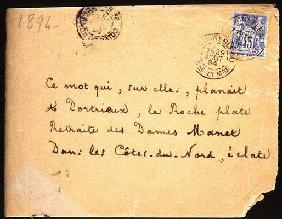 1894
15
Ce mot qui, sur elle, planait
À Portrieux, la Roche plate
Retraite des Dames Manet
Dans les Côtes-du-Nord, éclate